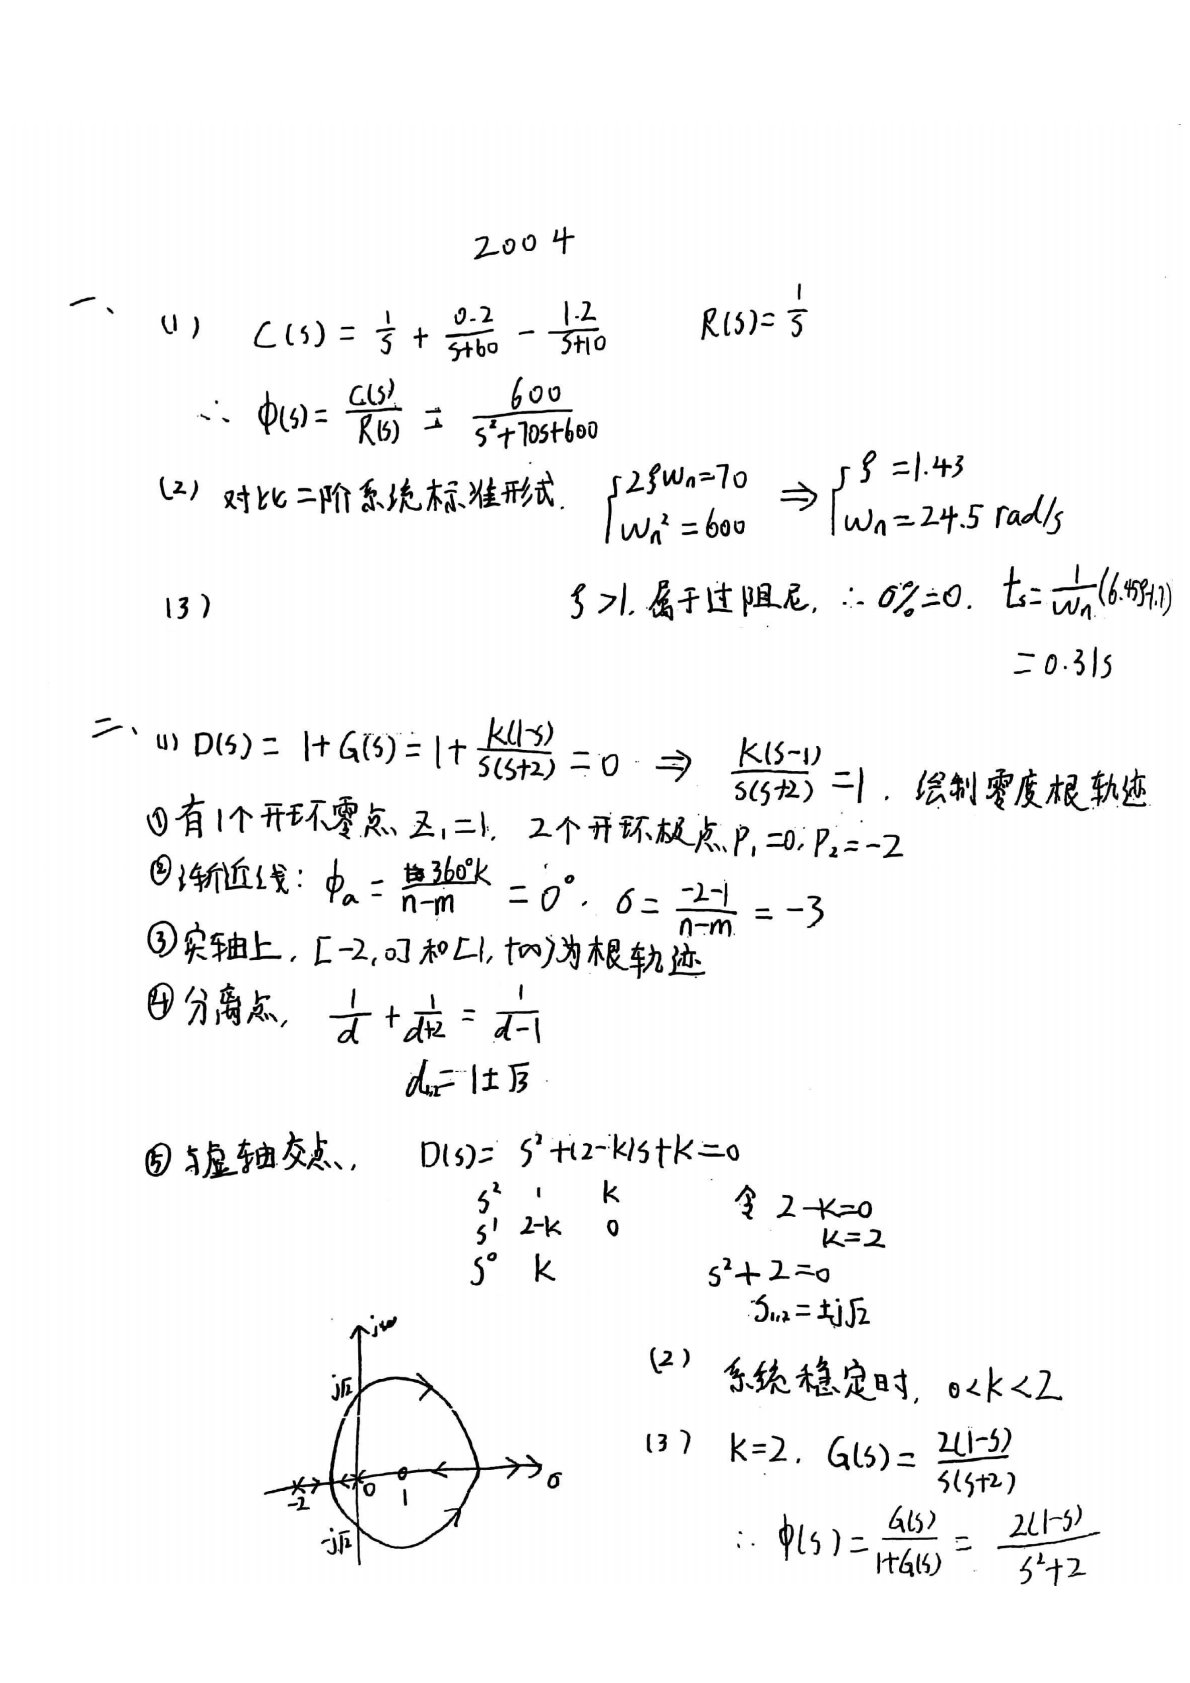 2004
一、 (1) C(s) = 1/s + 0.2/(s+60) - 1.2/(s+10) R(s)= 1/s
∴ φ(s)= C(s)/R(s) = 600/(s²+70s+600)
(2) 对比二阶系统标准形式. { 2ξωn=70 ωn²=600 ⇒ { ξ=1.43 ωn=24.5 rad/s
(3) ξ>1. 属于过阻尼, ∴ σ%=0. ts= 1/ωn (6.45ξ-1.7)
=0.31s
二、 (1) D(s)= 1+G(s)=1+ K(1-s)/(s(s+2)) =0 ⇒ K(s-1)/(s(s+2)) =1. 绘制零度根轨迹
① 有1个开环零点 Z₁=1, 2个开环极点 P₁=0, P₂=-2
② 渐近线: φa = 360°k/(n-m) = 0°. σ= (-2-1)/(n-m) = -3
③ 实轴上, [-2,0]和[1,+∞)为根轨迹
④ 分离点, 1/d + 1/(d+2) = 1/(d-1)
d₁,₂=1±√3
⑤ 与虚轴交点, D(s)= s²+(2-k)s+k=0
s² 1 k 令 2-k=0
s¹ 2-k 0 k=2
s⁰ k s²+2=0
s₁,₂=±j√2
jω
j√2
-2 0 1 σ
-j√2
(2) 系统稳定时, 0<k<2
(3) K=2. G(s)= 2(1-s)/(s(s+2))
∴ φ(s)= G(s)/(1+G(s)) = 2(1-s)/(s²+2)